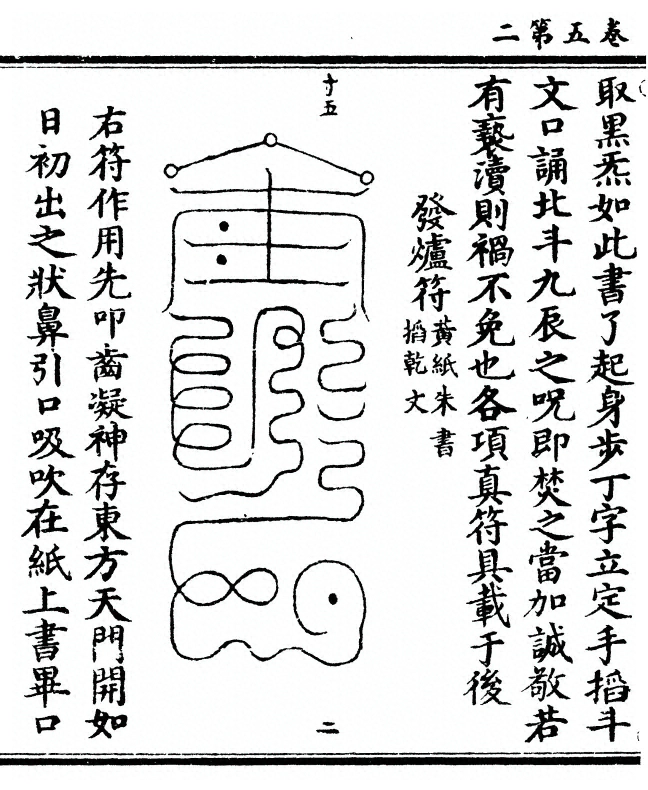 卷五第二
取黑炁如此書了起身步丁字立定手搯斗
文口誦北斗九辰之呪即焚之當加誠敬若
有褻瀆則禍不免也各項真符具載于後
發爐符
黃紙朱書
搯乾文
寸五
二
右符作用先叩齒凝神存東方天門開如
日初出之狀鼻引口吸吹在紙上書畢口